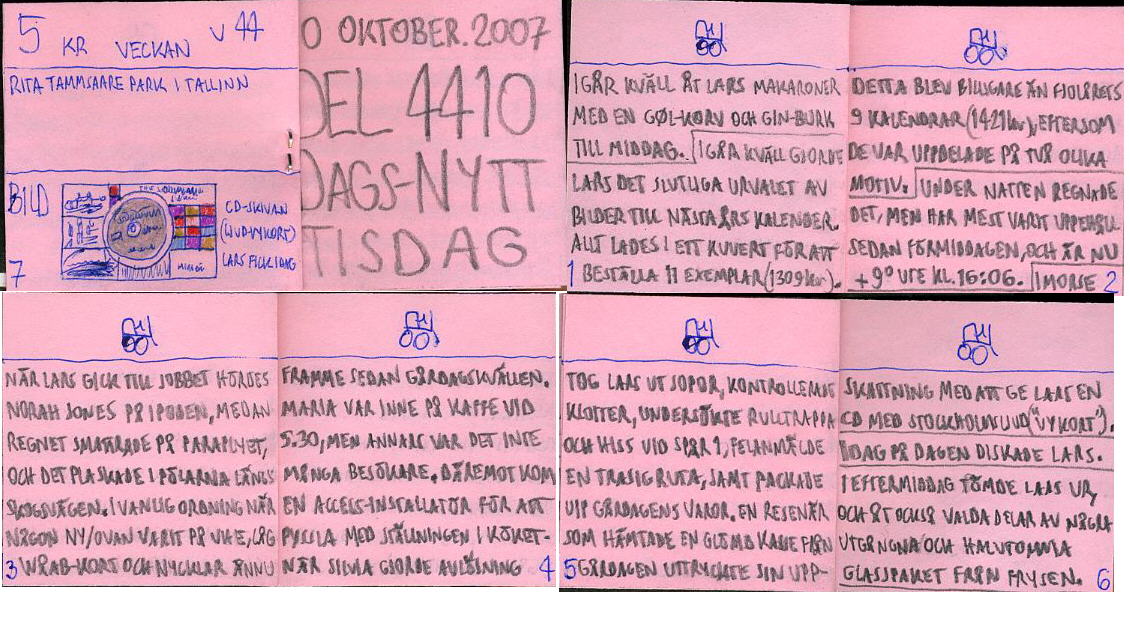 5 KR VECKAN V 44
RITA TAMMSAARE PARK I TALLINN
BILD
CD-SKIVAN
(LJUDVYKORT)
LARS FICK IDAG
7
0 OKTOBER.2007
DEL 4410
DAGS-NYTT
TISDAG
I GÅR KVÄLL ÅT LARS MAKARONER
MED EN GØL-KORV OCH GIN-BURK
TILL MIDDAG. I GÅR KVÄLL GJORDE
LARS DET SLUTLIGA URVALET AV
BILDER TILL NÄSTA ÅRS KALENDER.
ALLT LADES I ETT KUVERT FÖR ATT
1 BESTÄLLA 11 EXEMPLAR (1309kr).
DETTA BLEV BILLIGARE ÄN FJOLÅRETS
9 KALENDRAR (1421kr), EFTERSOM
DE VAR UPPDELADE PÅ TVÅ OLIKA
MOTIV. UNDER NATTEN REGNADE
DET, MEN HAR MEST VARIT UPPEHÅLL
SEDAN FÖRMIDDAGEN, OCH ÄR NU
+9° UTE KL.16:06. I MORSE 2
NÄR LARS GICK TILL JOBBET HÖRDES
NORAH JONES PÅ IPODEN, MEDAN
REGNET SMATTRADE PÅ PARAPLYET,
OCH DET PLASKADE I PÖLARNA LÄNGS
SKOGSVÄGEN. I VANLIG ORDNING NÄR
NÅGON NY/OVAN VARIT PÅ VHE, LÅG
3 WRAB-KORT OCH NYCKLAR ÄNNU
FRAMME SEDAN GÅRDAGSKVÄLLEN.
MARIA VAR INNE PÅ KAFFE VID
5.30, MEN ANNARS VAR DET INTE
MÅNGA BESÖKARE. DÄREMOT KOM
EN ACCESS-INSTALLATÖR FÖR ATT
PYSSLA MED STÄLLNINGEN I KÖKET-
NÄR SILVIA GJORDE AVLÖSNING 4
TOG LARS UT SOPOR, KONTROLLERADE
KLOTTER, UNDERSÖKTE RULLTRAPPA
OCH HISS VID SPÅR 1, FELANMÄLDE
EN TRASIG RUTA, SAMT PACKADE
UPP GÅRDAGENS VAROR. EN RESENÄR
SOM HÄMTADE EN GLÖMD KASSE FRÅN
5 GÅRDAGEN UTTRYCKTE SIN UPP-
SKATTNING MED ATT GE LARS EN
CD MED STOCKHOLMSLJUD ("VYKORT").
IDAG PÅ DAGEN DISKADE LARS.
I EFTERMIDDAG TÖMDE LARS UR,
OCH ÅT OCKSÅ VALDA DELAR AV NÅGRA
UTGÅNGNA OCH HALVTOMMA
GLASSPAKET FRÅN FRYSEN. 6